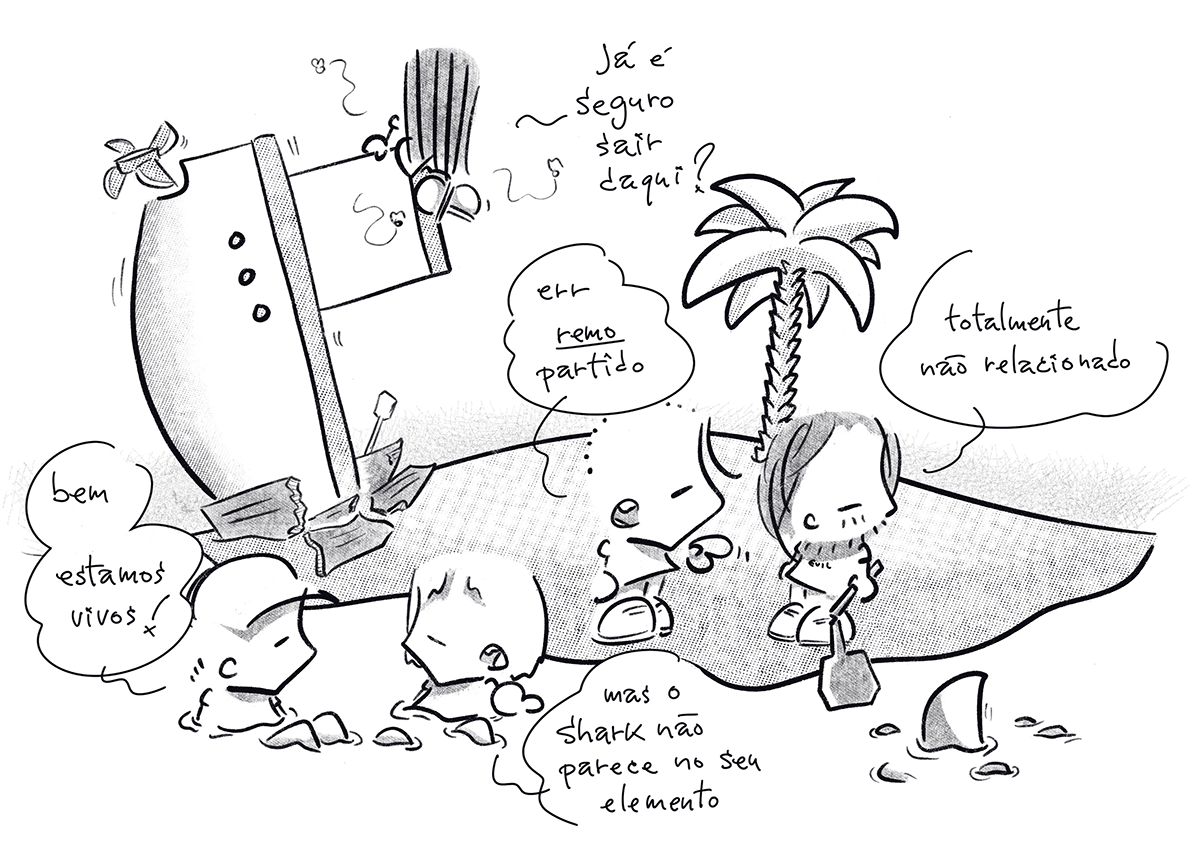 Já é
seguro
sair
daqui?
err
remo
partido
totalmente
não relacionado
bem
estamos
vivos!
EVIL
mas o
shark não
parece no seu
elemento